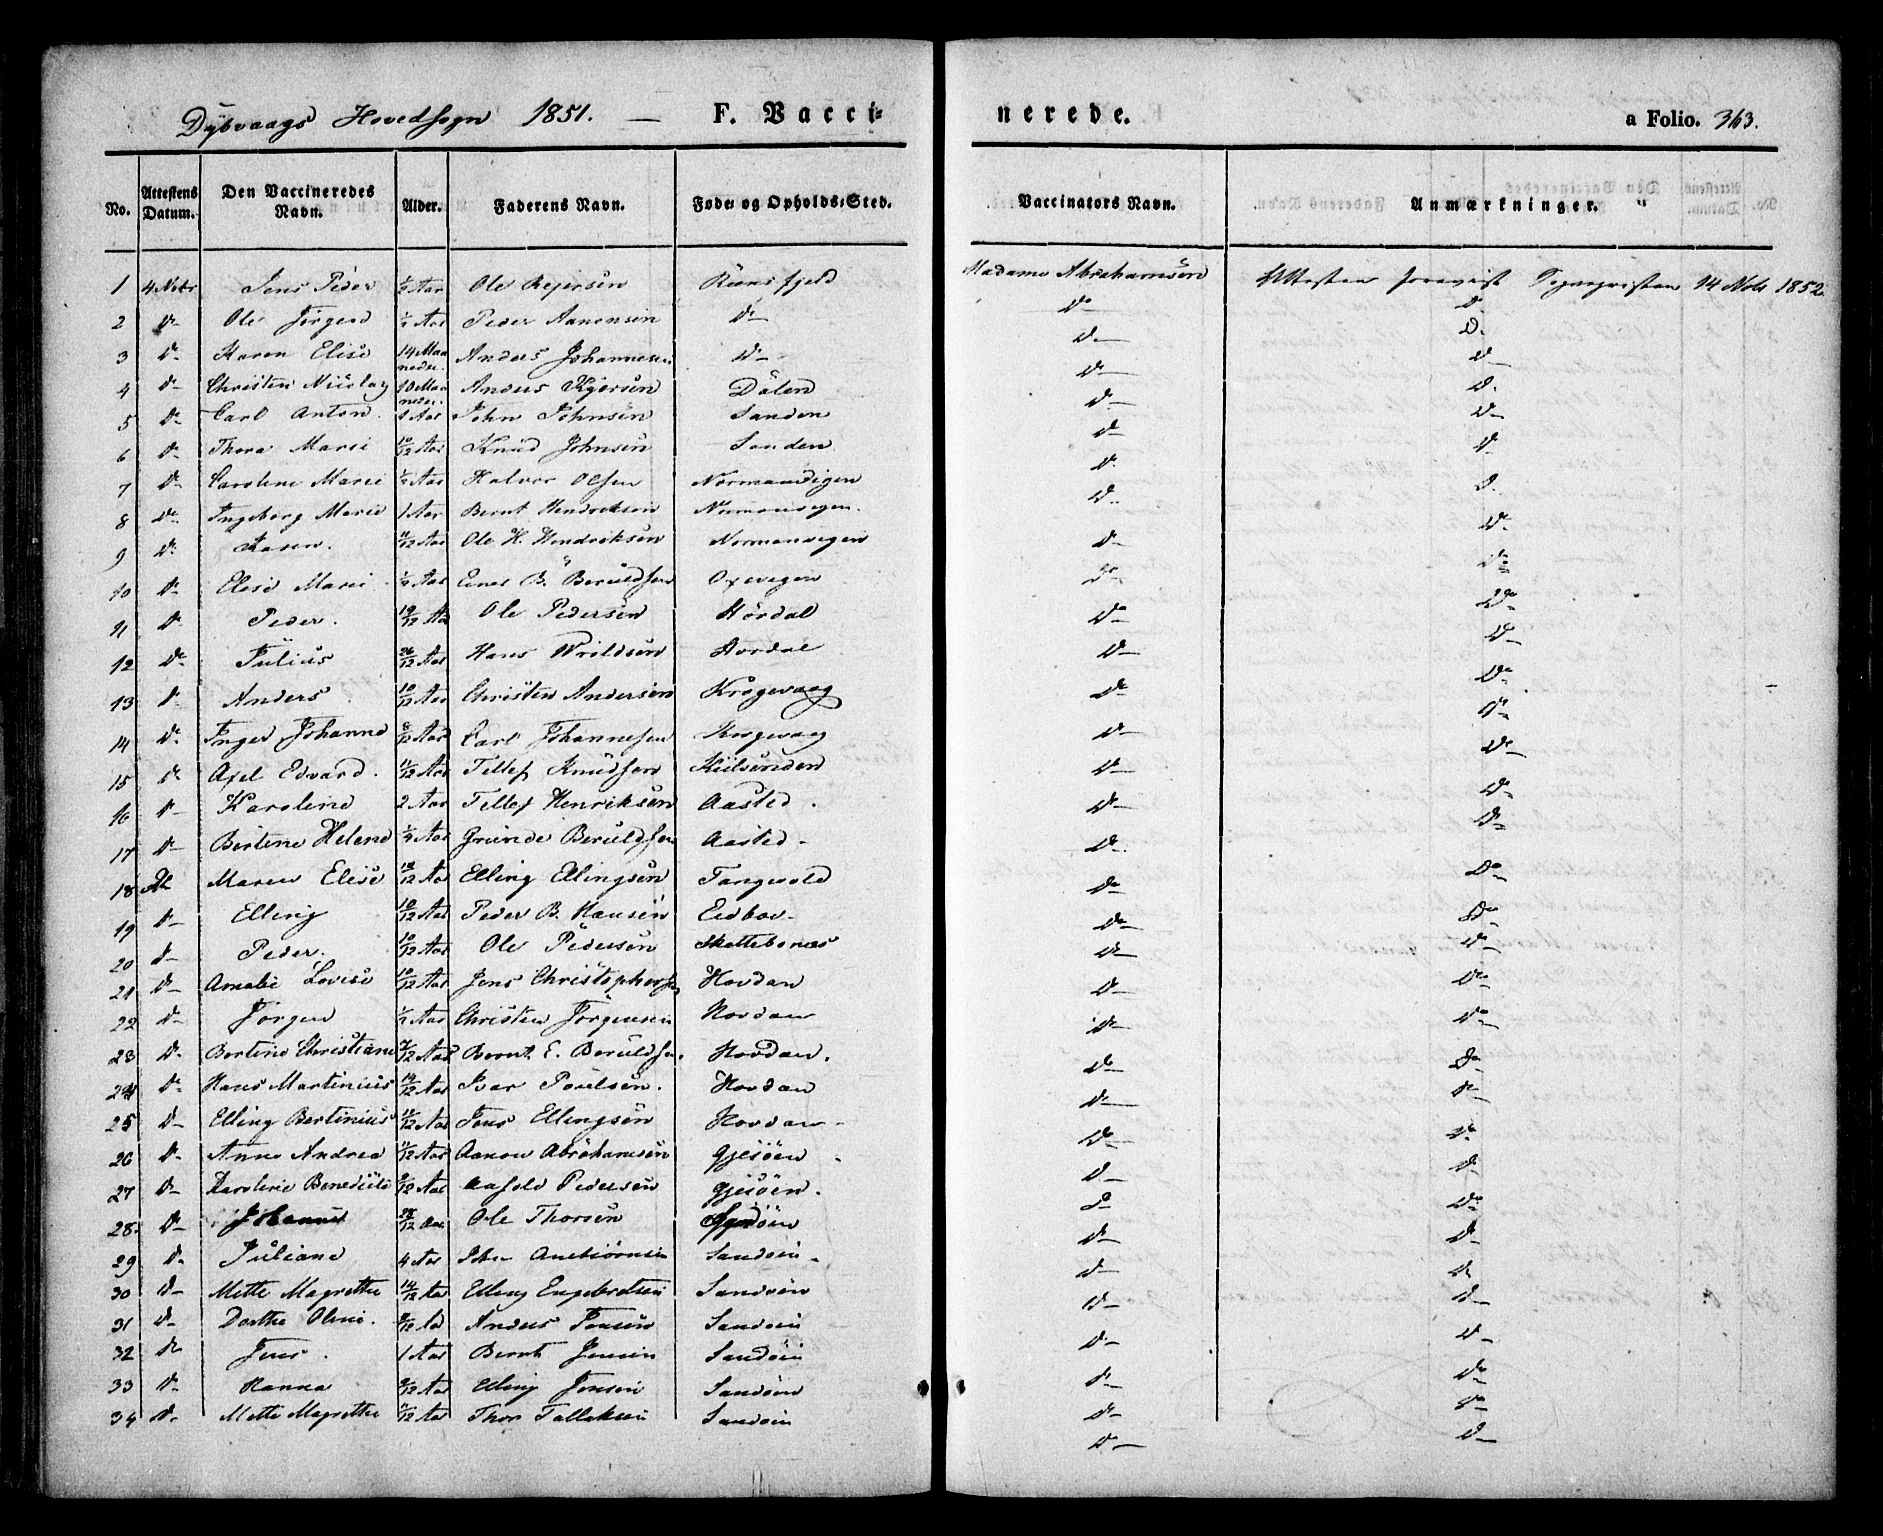 Dybvaags Hovedsogn 1851. — F. Vacci= nerede. a Folio. 363.
No. Attestens Datum. Den Vaccineredes Navn. Alder. Faderens Navn. Føde= og Opholds=Sted. Vaccinators Navn. Anmærkninger.
1 4 Nobr Jens Peder ½ Aar Ole Rejersen Madame Abrahamsen Attesten foreviist 14 Nobr 1852.
2 Do Ole Jørgen Aar Peder Aanensen Do Do Do
3 Do Karen Elise 14 Maaneder. Anders Johannesen Do Do Do
4 Do Christen Nicolay 10 Maaneder. Anders Dalen Do Do
5 Do Carl Anton. 1 Aar John Johnsen Sanden Do Do
6 Do Thora Marie 10/12 Aar Knud Johnsen Sanden Do Do
7 Do Caroline Marie ½ Aar Halvor Olsen Normandvigen Do Do
8 Do Ingeborg Marie 1 Aar Bernt Hendriksen Normanvigen. Do Do
9 Do 11/12 Aar Ole H. Hendriksen Normanvigen Do Do
10 Do Elise Marie Aar B. Beruldsen Oxevigen Do Do
11 Do Peder. 19/12 Aar Ole Pedersen Hørdal Do Do
12 Do Julius 26/12 Aar Hans Hordal Do Do
13 Do Anders 10/12 Aar Christen Andersen Krogevaag Do Do
14 Do Inger Johanne 8/12 Aar Carl Johannesen Krogevaag Do Do
15 Do Axel Edvard. 11/12 Aar Tellef Knudsen Kiilsunden Do Do
16 Do Karoline 2 Aar Tellef Henriksen Aasted. Do Do
17 Do Bertine Helene Aar Grunde Beruldsen Aasted. Do Do
18 Do Maren Elise 18/12 Aar Elling Ellingsen Tangvald Do Do
19 Do Elling 10/12 Aar Peder B. Hansen Eidboe. Do Do
20 Do Peder. 10/12 Aar Ole Pedersen Skottebonæs Do Do
21 Do Amalie Lovise 10/12 Aar Jens Christophersen Hovdan Do Do
22 Do Jørgen ½ Aar Christen Jørgensen Hovdan Do Do
23 Do Bertine Christiane 7/12 Aar Bernt E. Beruldsen. Hovdan. Do Do
24 Do Hans Martinius 14/12 Aar Ivar Poulsen. Hovdan Do Do
25 Do Elling Bertinius 11/12 Aar Jens Ellingsen Hovdan Do Do
26 Do Anne Andrea 11/12 Aar Aanon Abrahamsen Gjesøen Do Do
27 Do Karoline Benedicte 9/12 Aar Aasold Pedersen Gjesøen. Do Do
28. Do Johanne 28/12 Aar Ole Thorsen Sandøen Do Do
29 Do Juliane 4 Aar Sandøen Do Do
30 Do Mette Magrethe 14/12 Aar Elling Engebretsen Sandøen Do Do
31 Do Dorthe Oline. 8/12 Aar Anders Sandøen Do Do
32 Do Jens. 1 Aar Bernt Jensen Sandøen Do Do
33 Do Hanna 9/12 Aar Elling Jensen Sandøen Do Do
34 Do Mette Magrethe 7/12 Aar Thor Tallaksen Sandøen Do Do